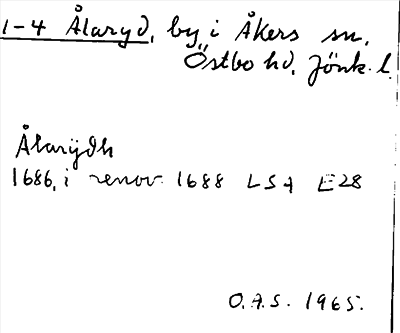 1-4 Ålaryd, by i Åkers sn.
Östbo hd, Jönk. l.
Ålarÿdh
1686, i renov. 1688 LSA E28
O.A.S. 1965.